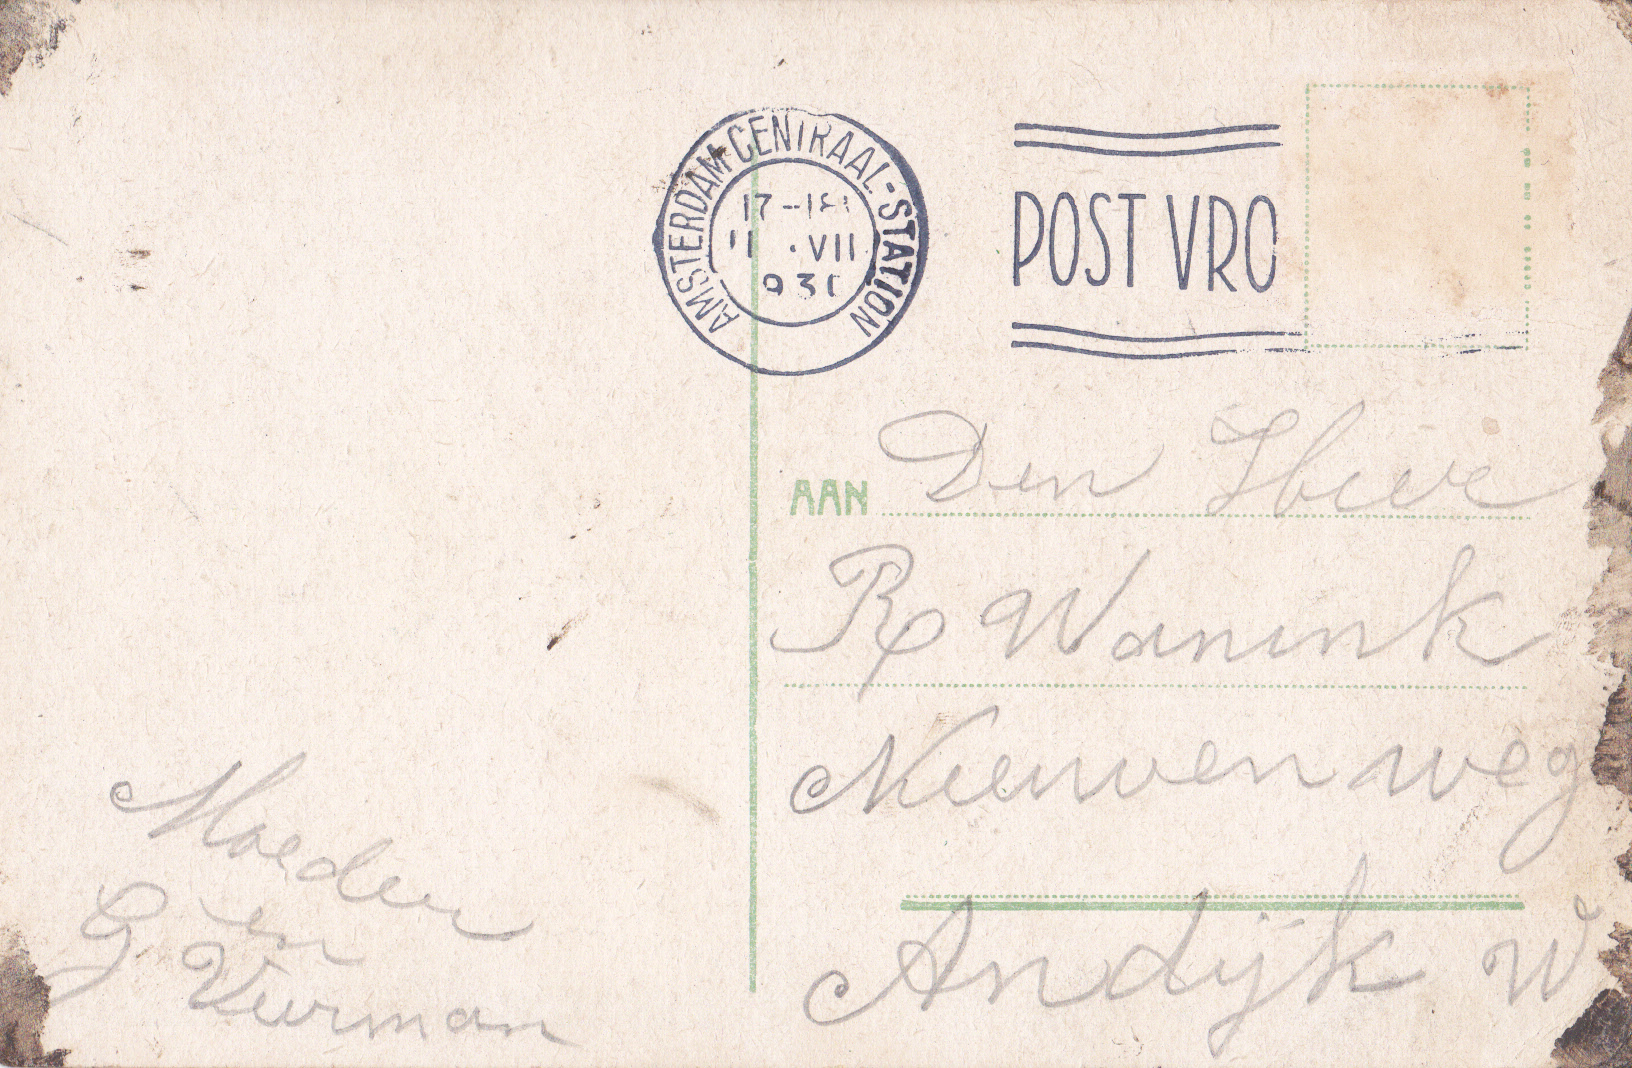 AMSTERDAM-CENTRAAL-STATION
17-18
11 .VII
931
POST VRO
AAN Den Heer
R Wanink
Nieuwen weg
Andijk W
Moeder
en
G Veerman